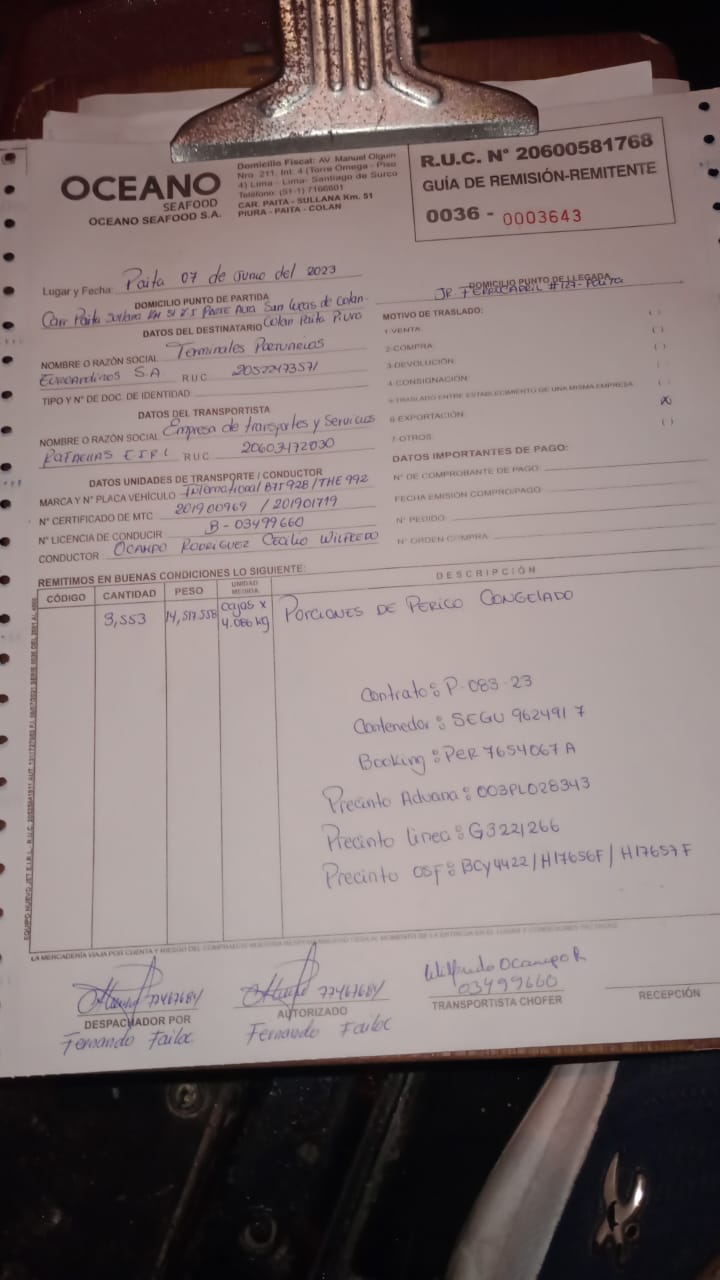 OCEANO
SEAFOOD
OCEANO SEAFOOD S.A.
Domicilio Fiscal: AV. Manuel Olguin
Nro. 211. Int. 4 (Torre Omega - Piso
4) Lima - Lima- Santiago de Surco
Teléfono: (51-1) 7166601
CAR. PAITA - SULLANA Km. 51
PIURA - PAITA - COLAN
R.U.C. N° 20600581768
GUÍA DE REMISIÓN-REMITENTE
0036 - 0003643
Lugar y Fecha: Paita 07 de Junio del 2023
DOMICILIO PUNTO DE PARTIDA
Carr Paita Sullana KM 51 Parte Alta San Lucas de Colan-
Colan Paita Piura
DOMICILIO PUNTO DE LLEGADA
JR. FERROCARRIL #127-Paita
DATOS DEL DESTINATARIO
NOMBRE O RAZÓN SOCIAL Terminales Portuarios
Euroandinos S.A RUC 20522473571
TIPO Y N° DE DOC. DE IDENTIDAD
DATOS DEL TRANSPORTISTA
NOMBRE O RAZÓN SOCIAL Empresa de transportes y Servicios
EIRL RUC 20603172030
DATOS UNIDADES DE TRANSPORTE / CONDUCTOR
MARCA Y N° PLACA VEHÍCULO International/BTT928/THE 992
N° CERTIFICADO DE MTC 201900969 / 201901719
N° LICENCIA DE CONDUCIR B-03499660
CONDUCTOR: OCAMPO RODRIGUEZ CECILIO WILFREDO
MOTIVO DE TRASLADO:
1-VENTA ( )
2-COMPRA ( )
3-DEVOLUCIÓN ( )
4-CONSIGNACIÓN
5-TRASLADO ENTRE ESTABLECIMIENTO DE UNA MISMA EMPRESA ( )
6-EXPORTACIÓN (X)
7-OTROS ( )
DATOS IMPORTANTES DE PAGO:
N° DE COMPROBANTE DE PAGO:
FECHA EMISIÓN COMPRO/PAGO:
N° PEDIDO:
N° ORDEN COMPRA:
REMITIMOS EN BUENAS CONDICIONES LO SIGUIENTE:
CÓDIGO CANTIDAD PESO UNIDAD MEDIDA DESCRIPCIÓN
3,553 14,517.558 cajas x 4.086 kg PORCIONES DE PERICO CONGELADO
Contrato: P-083-23
Contenedor: SEGU 962491 7
Booking: PER 7654067 A
Precinto Aduana: 003PL028343
Precinto Linea: G3221266
Precinto OSF: BCY4422/H17656F/H17657F
77467684
DESPACHADOR POR
Fernando Failoc
77467684
AUTORIZADO
Fernando Failoc
Wilfredo Ocampo R
03499660
TRANSPORTISTA CHOFER
RECEPCIÓN